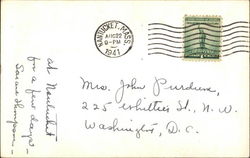 NANTUCKET, MASS.
AUG 22
9-PM
1941
at Nantucket
for a few days -
Mrs. John Purdue,
225 Whittier St., N.W.
Washington, D.C.